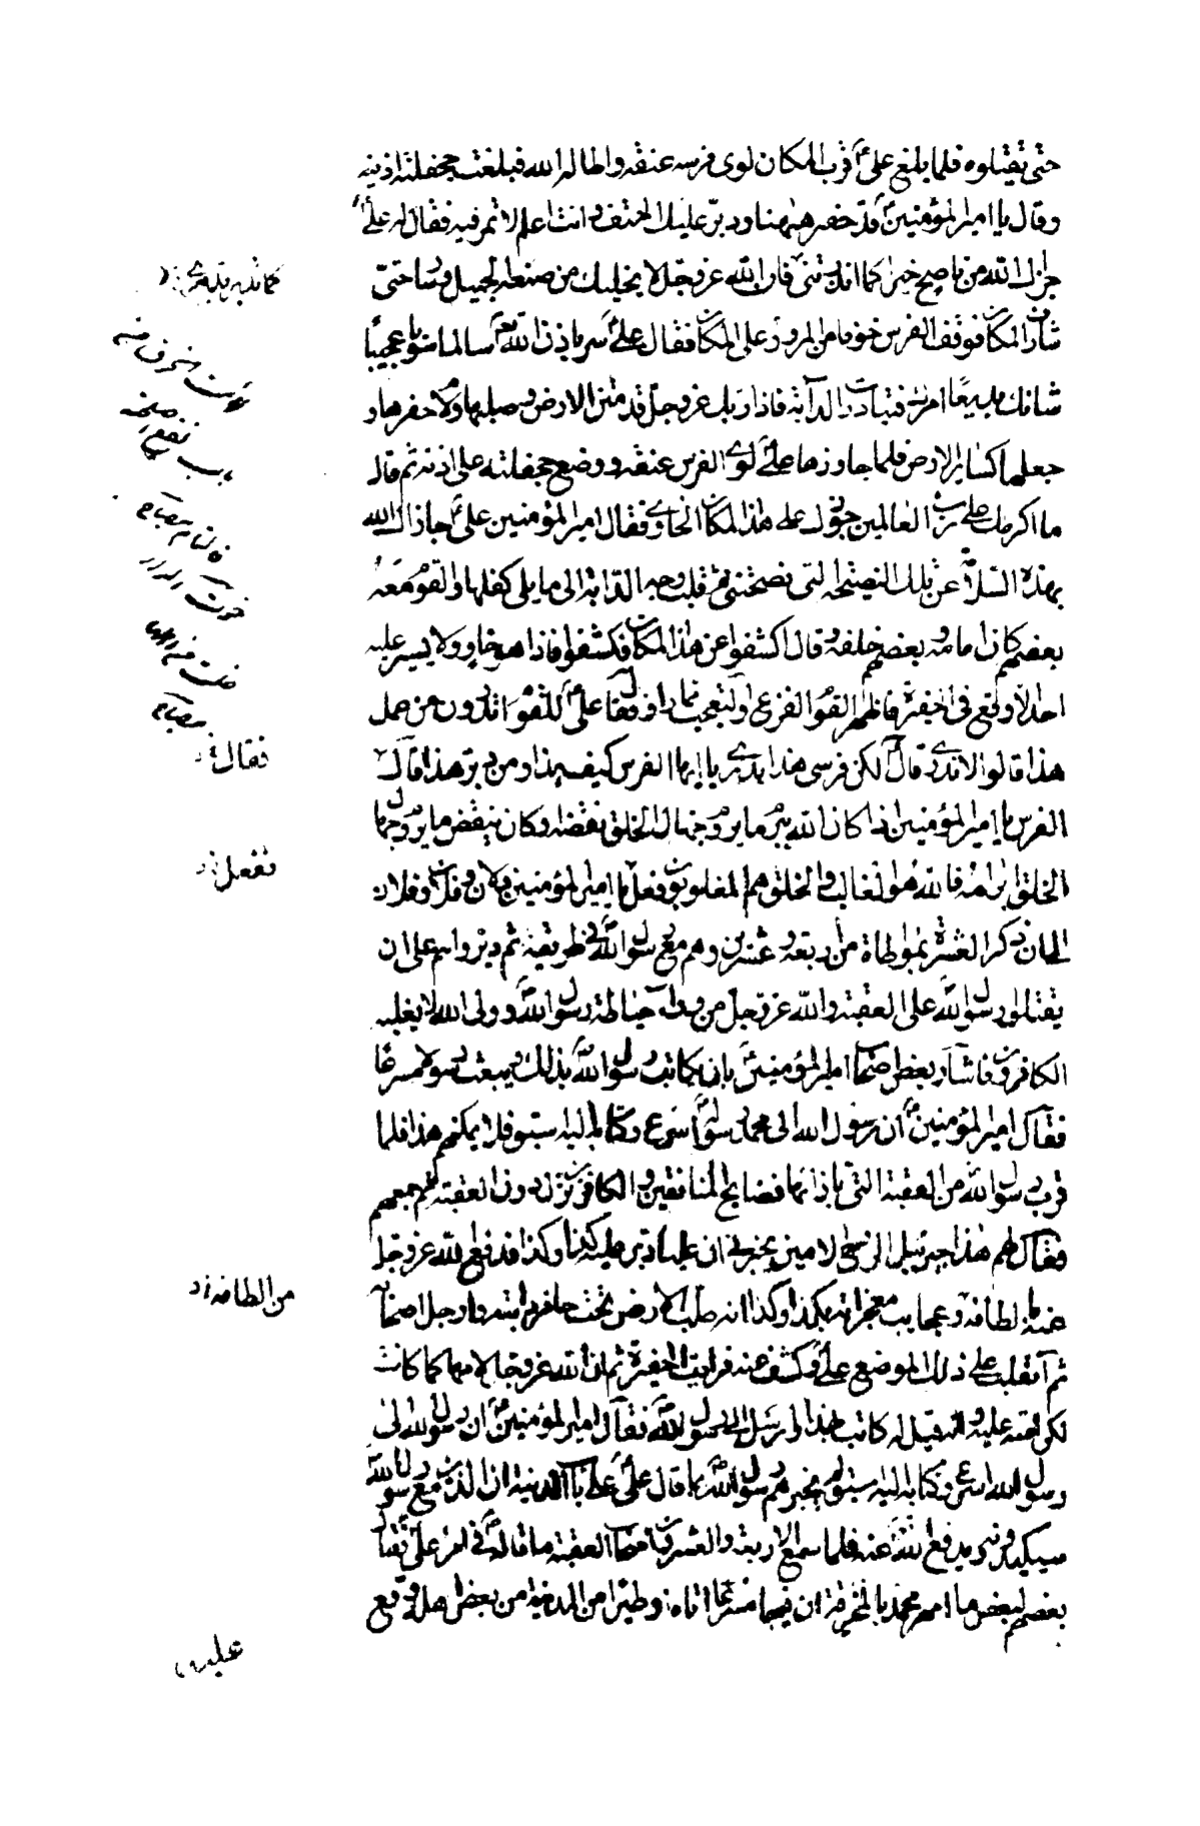 حتى تقتلوه فلما بلغ علي ع قرب المكان لوى فرسه عنقه واطاله الله فبلغت جحفلته اذنيه
وقال يا امير المؤمنين قد حفر ههنا ودبر عليك الحتف وانت اعلم لا تمر فيه فقال له علي ع
جزاك الله من ناصح خيرا كما فان الله عز وجل لا يخليك من صنعه الجميل وسار حتى
شارف المكان فوقف الفرس خوفا من المرور على المكان فقال علي ع سر باذن الله سالما سويا عجيبا
شانك بديعا امرك فتبادرت الدابة فاذا ربك عز وجل قد متن الارض وصلبها ولام حفرها و
جعلها كسائر الارض فلما جاوزها علي ع لوى الفرس عنقه ووضع جحفلته على اذنه ثم قال
ما اكرمك على رب العالمين جوزك على هذا المكان الخاوي فقال امير المؤمنين علي ع جازاك الله
بهذه السلامة عن تلك النصيحة التي نصحتني ثم قلب وجه الدابة الى ما يلي كفلها والقوم معه
بعضهم كان امامه وبعضهم خلفه وقال اكشفوا عن هذا المكان فكشفوا فاذا هو خاو ولا يسير عليه
احد الا وقع في الحفرة فاظهر القوم الفزع والتعجب مما راوا فقال علي ع للقوم اتدرون من عمل
هذا قالوا لا ندري قال لكن فرسي هذا يدري يا ايها الفرس كيف هذا ومن دبر هذا قال
الفرس يا امير المؤمنين اذا كان الله يبرم ما يروم جهال الخلق نقضه وكان ينقض ما يروم جهال
الخلق ابرامه فالله هو الغالب والخلق هم المغلوبون فعل يا امير المؤمنين فلان وفلان وفلان
الى ان ذكر العشرة بمواطاة من اربعة وعشرين وهم مع رسول الله في طريقه ثم دبروا هم على ان
يقتلوا رسول الله على العقبة والله عز وجل من وراء حياطة رسول الله وولي الله لا يغلبه
الكافرون فاشار بعض اصحاب امير المؤمنين بان يكاتب رسول الله بذلك ويبعث رسولا مسرعا
فقال امير المؤمنين ان رسول الله الى محمد رسوله اسرع وكتابه اليه اسبق فلا يهمنكم هذا فلما
قرب رسول الله من العقبة التي بازائها فضايح المنافقين والكافرين نزل دون العقبة ثم جمعهم
فقال لهم هذا جبرئيل الروح الامين يخبرني ان عليا دبر عليه كذا وكذا فدفع الله عز وجل
عنه بالطافه وعجايب معجزاته بكذا وكذا انه صلب الارض تحت حافر دابته وارجل اصحابه
ثم انقلب على ذلك الموضع علي ع وكشف عنه فرايت الحفيرة ثم ان الله عز وجل لامها كما كانت
لكرامته عليه وانه قيل له كاتب بهذا وارسل الى رسول الله فقال امير المؤمنين ان رسول الله الى
رسول الله اسرع وكتابه اليه اسبق ولم يخبرهم رسول الله بما قال علي ع على باب المدينة ان الذين مع رسول الله
سيكيدونه ويدفع الله عنه فلما سمع الاربعة والعشرون اصحاب العقبة ما قاله في امر علي ع قال
بعضهم لبعض ما امهر محمد بالمخرقة ان فيجا مسرعا اتاه او طيرا من المدينة من بعض اهله وقع
فقال
ففعل
من الطافه
عليه